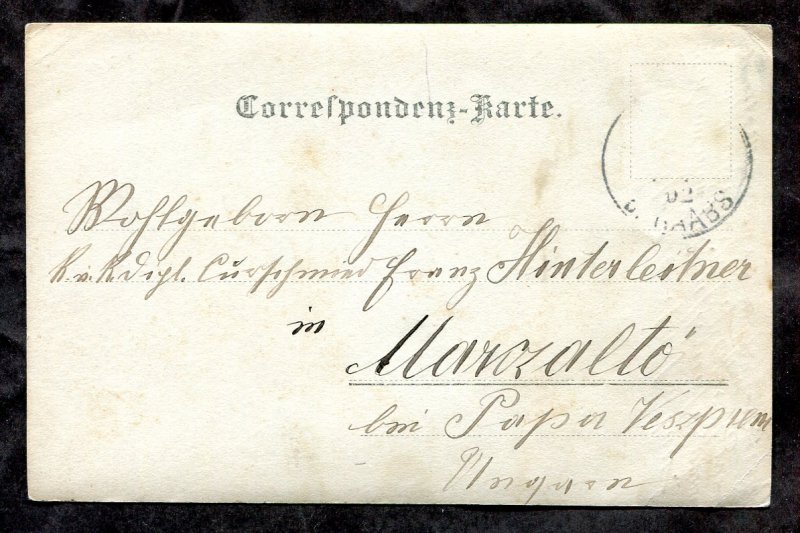 Correspondenz-Karte.
02
RAABS
Wohlgeborn Herrn
K. u. K dipl. Curschmied Franz Hinterleitner
in
Marczaltö
bei Papa Veszprem
Ungarn